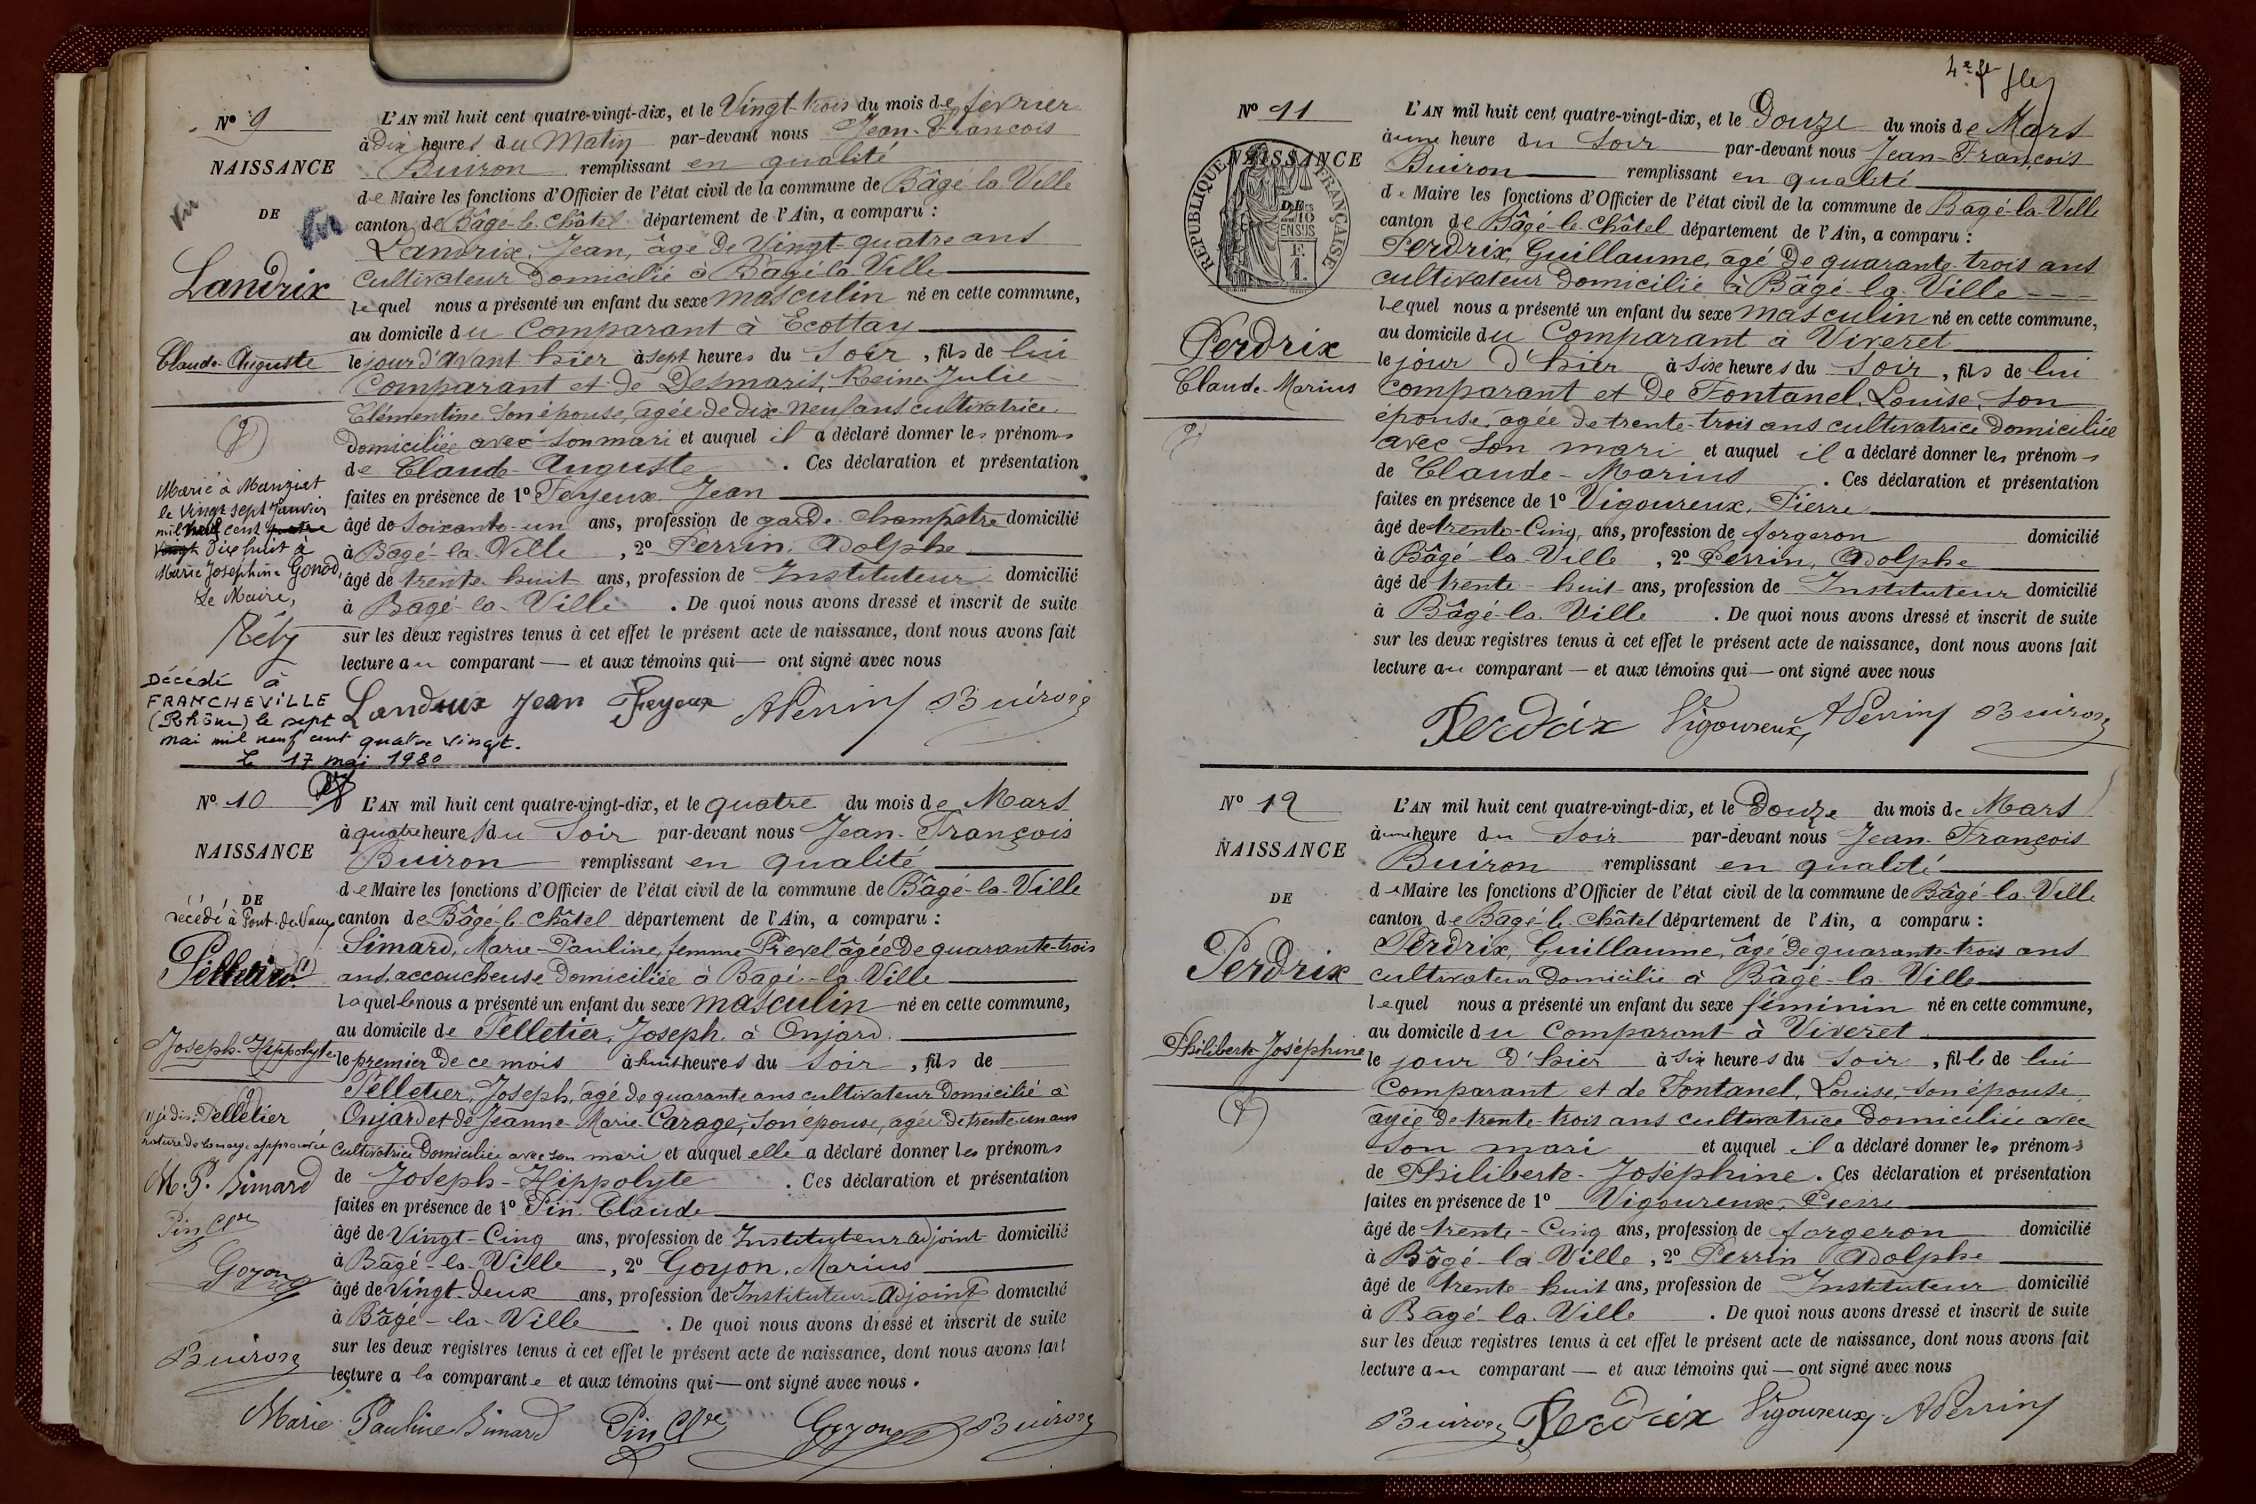 Nº 9
NAISSANCE
DE
Vu
Landrix
Claude-Auguste
Marié à Manziat
le vingt sept Janvier
mil neuf cent quatre
vingt dix huit à
Marie Josephine Gonod,
Le Maire,
Décédé à
FRANCHEVILLE
(Rhône) le sept
mai mil neuf cent quatre vingt.
Le 17 mai 1980
L'AN mil huit cent quatre-vingt-dix, et le Vingt-trois du mois de février
à dix heures du Matin par-devant nous Jean-François
Buiron remplissant en qualité
de Maire les fonctions d'Officier de l'état civil de la commune de Bâgé-la-Ville
canton de Bâgé-le-Châtel département de l'Ain, a comparu :
Landrix, Jean, âgé de Vingt-quatre ans
cultivateur domicilié à Bâgé-la-Ville
lequel nous a présenté un enfant du sexe masculin né en cette commune,
au domicile du Comparant à Ecottay
le jour d'avant hier à sept heures du Soir, fils de lui
Comparant et de Desmaris, Reine Julie
Clémentine son épouse, âgée de dix neuf ans cultivatrice
domiciliée avec son mari et auquel il a déclaré donner les prénoms
de Claude-Auguste. Ces déclaration et présentation
faites en présence de 1º Feyeux Jean
âgé de soixante-un ans, profession de garde champêtre domicilié
à Bâgé-la-Ville, 2º Perrin, Adolphe
âgé de trente-huit ans, profession de Instituteur domicilié
à Bâgé-la-Ville. De quoi nous avons dressé et inscrit de suite
sur les deux registres tenus à cet effet le présent acte de naissance, dont nous avons fait
lecture au comparant — et aux témoins qui — ont signé avec nous
Landrix Jean Feyeux APerrin Buiron
Nº 10
NAISSANCE
DE
décédé à Pont-de-Vaux
Pelhard (1)
Joseph-Hippolyte
(1) je dis: Pelletier
rature de la marge approuvée
M. P. Simard
Pin Cde
Goyon
Buiron
L'AN mil huit cent quatre-vingt-dix, et le quatre du mois de Mars
à quatre heures du Soir par-devant nous Jean-François
Buiron remplissant en qualité
de Maire les fonctions d'Officier de l'état civil de la commune de Bâgé-la-Ville
canton de Bâgé-le-Châtel département de l'Ain, a comparu :
Simard, Marie-Pauline, femme Prevel âgée de quarante-trois
ans, accoucheuse domiciliée à Bagé-la-Ville
laquelle nous a présenté un enfant du sexe masculin né en cette commune,
au domicile de Pelletier, Joseph, à Onjard
le premier de ce mois à huit heures du Soir, fils de
Pelletier, Joseph, âgé de quarante ans cultivateur domicilié à
Onjard et de Jeanne-Marie Carage, son épouse, âgée de trente-un ans
cultivatrice domiciliée avec son mari et auquel elle a déclaré donner les prénoms
de Joseph-Hippolyte. Ces déclaration et présentation
faites en présence de 1º Pin Claude
âgé de Vingt-Cinq ans, profession de Instituteur adjoint domicilié
à Bâgé-la-Ville, 2º Goyon, Marius
âgé de Vingt-deux ans, profession de Instituteur-Adjoint domicilié
à Bâgé-la-Ville. De quoi nous avons dressé et inscrit de suite
sur les deux registres tenus à cet effet le présent acte de naissance, dont nous avons fait
lecture a la comparante et aux témoins qui — ont signé avec nous.
Marie Pauline Simard Pin Cde Goyon Buiron
Nº 11
NAISSANCE
DE
RÉPUBLIQUE FRANÇAISE
Perdrix
Claude-Marius
L'AN mil huit cent quatre-vingt-dix, et le Douze du mois de Mars
à une heure du Soir par-devant nous Jean-François
Buiron remplissant en qualité
de Maire les fonctions d'Officier de l'état civil de la commune de Bagé-la-Ville
canton de Bâgé-le-Châtel département de l'Ain, a comparu :
Perdrix, Guillaume, âgé de quarante-trois ans
cultivateur domicilié à Bâgé-la-Ville
lequel nous a présenté un enfant du sexe masculin né en cette commune,
au domicile du Comparant à Viveret
le jour d'hier à six heures du Soir, fils de lui
comparant et de Fontanel, Louise, son
épouse, âgée de trente-trois ans cultivatrice domiciliée
avec son mari et auquel il a déclaré donner les prénoms
de Claude-Marius. Ces déclaration et présentation
faites en présence de 1º Vigoureux, Pierre
âgé de trente-Cinq ans, profession de forgeron domicilié
à Bâgé-la-Ville, 2º Perrin, Adolphe
âgé de trente-huit ans, profession de Instituteur domicilié
à Bâgé-la-Ville. De quoi nous avons dressé et inscrit de suite
sur les deux registres tenus à cet effet le présent acte de naissance, dont nous avons fait
lecture au comparant — et aux témoins qui — ont signé avec nous
Perdrix Vigoureux APerrin Buiron
Nº 12
NAISSANCE
DE
Perdrix
Philiberte Joséphine
L'AN mil huit cent quatre-vingt-dix, et le Douze du mois de Mars
à une heure du Soir par-devant nous Jean-François
Buiron remplissant en qualité
de Maire les fonctions d'Officier de l'état civil de la commune de Bâgé-la-Ville
canton de Bagé-le-Châtel département de l'Ain, a comparu :
Perdrix, Guillaume, âgé de quarante-trois ans
cultivateur domicilié à Bâgé-la-Ville
lequel nous a présenté un enfant du sexe féminin né en cette commune,
au domicile du Comparant à Viveret
le jour d'hier à six heures du Soir, fille de lui
Comparant et de Fontanel, Louise, son épouse,
âgée de trente-trois ans cultivatrice domiciliée avec
son mari et auquel il a déclaré donner les prénoms
de Philiberte-Joséphine. Ces déclaration et présentation
faites en présence de 1º Vigoureux, Pierre
âgé de trente-Cinq ans, profession de forgeron domicilié
à Bâgé-la-Ville, 2º Perrin Adolphe
âgé de trente-huit ans, profession de Instituteur domicilié
à Bagé-la-Ville. De quoi nous avons dressé et inscrit de suite
sur les deux registres tenus à cet effet le présent acte de naissance, dont nous avons fait
lecture au comparant — et aux témoins qui — ont signé avec nous
Buiron Perdrix Vigoureux APerrin